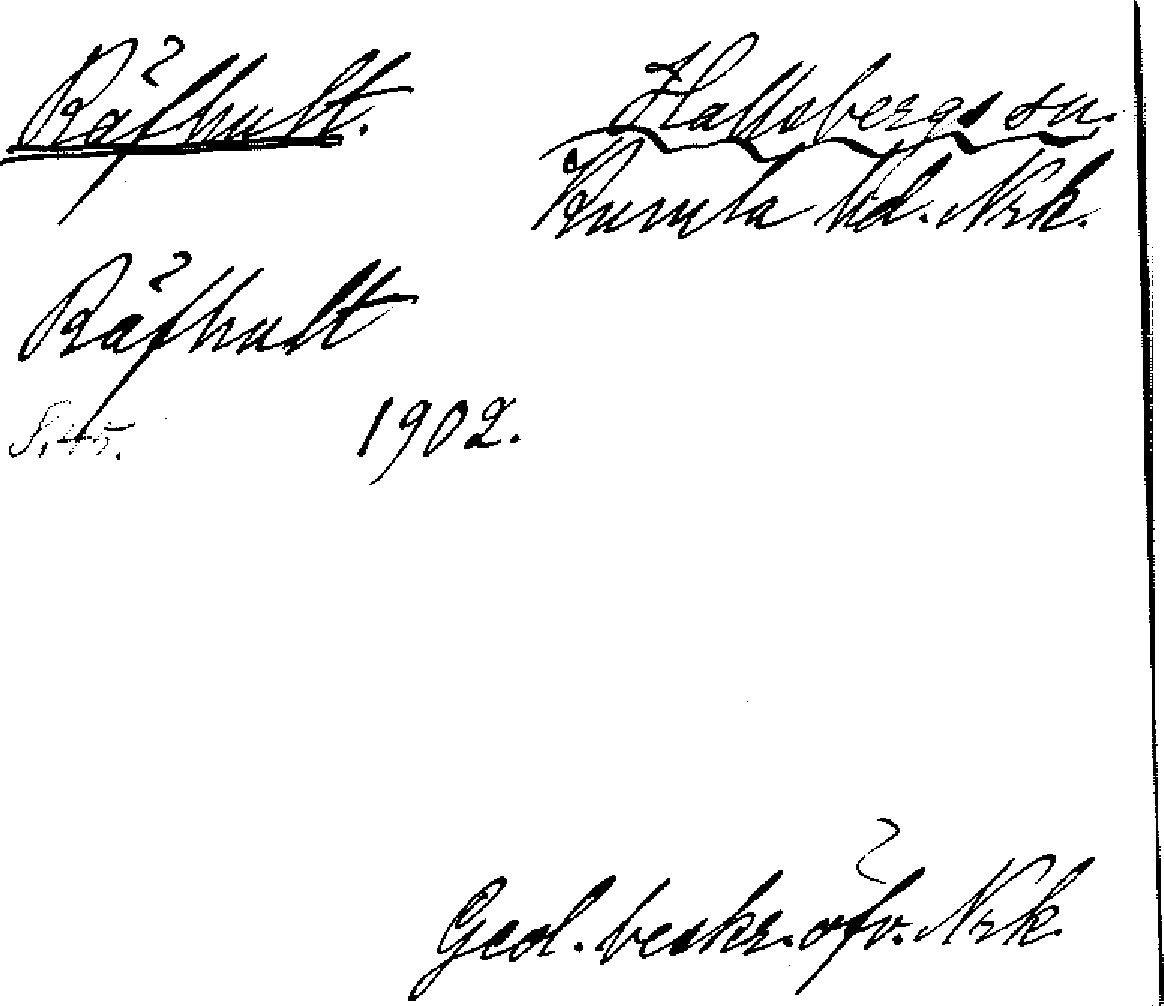 Räfhult. Hallsbergs sn.
Kumla hd. Nrk.
Räfhult
S. 45. 1902.
Geol. beskr. öfv. Nrk.